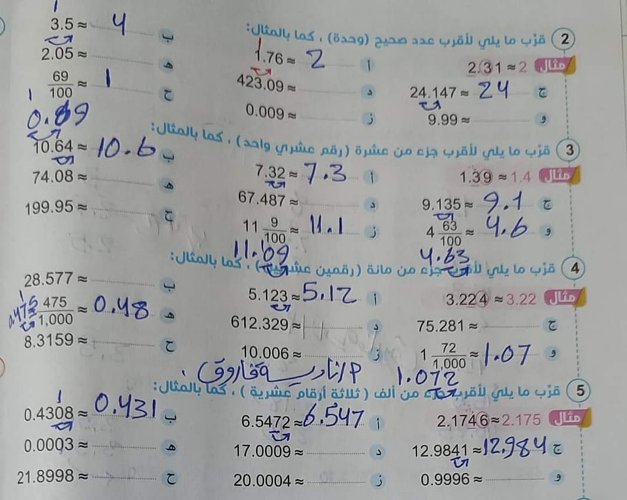 2 قرّب ما يلي لأقرب عدد صحيح (وحدة) ، كما بالمثال:
مثال 2.31 ≈ 2 أ 1.76 ≈ 2 ب 3.5 ≈ 4
ج 24.147 ≈ 24 د 423.09 ≈ ه 2.05 ≈
و 9.99 ≈ ز 0.009 ≈ ح 69/100 ≈ 1
0.69
3 قرّب ما يلي لأقرب جزء من عشرة (رقم عشري واحد) ، كما بالمثال:
مثال 1.39 ≈ 1.4 أ 7.32 ≈ 7.3 ب 10.64 ≈ 10.6
ج 9.135 ≈ 9.1 د 67.487 ≈ ه 74.08 ≈
و 4 63/100 ≈ 4.6 ز 11 9/100 ≈ 11.1 ح 199.95 ≈
4.63 11.09
4 قرّب ما يلي لأقرب جزء من مائة (رقمين عشريين) ، كما بالمثال:
مثال 3.224 ≈ 3.22 أ 5.123 ≈ 5.12 ب 28.577 ≈
ج 75.281 ≈ د 612.329 ≈ ه 475/1,000 ≈ 0.48
0.475
و 1 72/1,000 ≈ 1.07 ز 10.006 ≈ ح 8.3159 ≈
1.072
5 قرّب ما يلي لأقرب جزء من ألف ( ثلاثة أرقام عشرية ) ، كما بالمثال:
مثال 2.1746 ≈ 2.175 أ 6.5472 ≈ 6.547 ب 0.4308 ≈ 0.431
ج 12.9841 ≈ 12.984 د 17.0009 ≈ ه 0.0003 ≈
و 0.9996 ≈ ز 20.0004 ≈ ح 21.8998 ≈